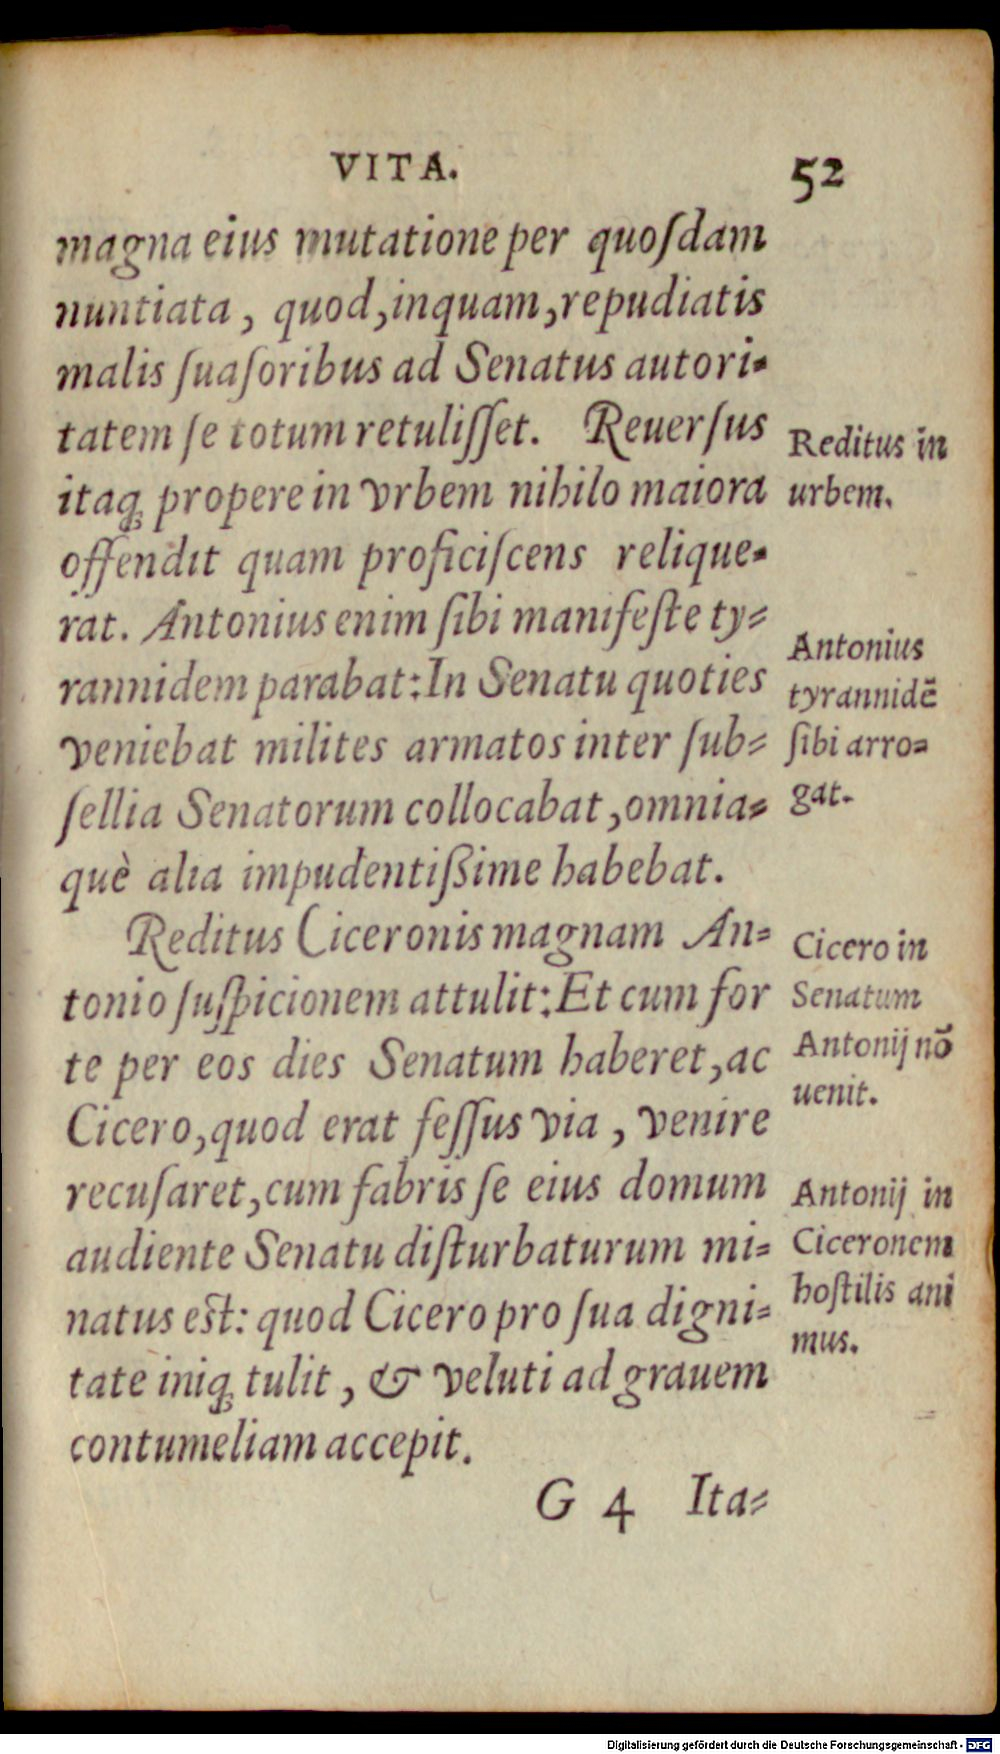 VITA. 52
magna eius mutatione per quoſdam
nuntiata, quod, inquam, repudiatis
malis ſuaſoribus ad Senatus autori⸗
tatem ſe totum retuliſſet. Reuerſus
itaq; propere in vrbem nihilo maiora
offendit quam proficiſcens relique⸗
rat. Antonius enim ſibi manifeſte ty⸗
rannidem parabat: In Senatu quoties
veniebat milites armatos inter ſub⸗
ſellia Senatorum collocabat, omnia⸗
què alia impudentißime habebat.
Reditus Ciceronis magnam An⸗
tonio ſuſpicionem attulit: Et cum for
te per eos dies Senatum haberet, ac
Cicero, quod erat feſſus via, venire
recuſaret, cum fabris ſe eius domum
audiente Senatu diſturbaturum mi⸗
natus eſt: quod Cicero pro ſua digni⸗
tate iniq; tulit, & veluti ad grauem
contumeliam accepit.
G 4 Ita⸗
Reditus in
urbem.
Antonius
tyrannidē
ſibi arro⸗
gat.
Cicero in
Senatum
Antonij nō
uenit.
Antonij in
Ciceronem
hoſtilis ani
mus.
Digitalisierung gefördert durch die Deutsche Forschungsgemeinschaft - DFG